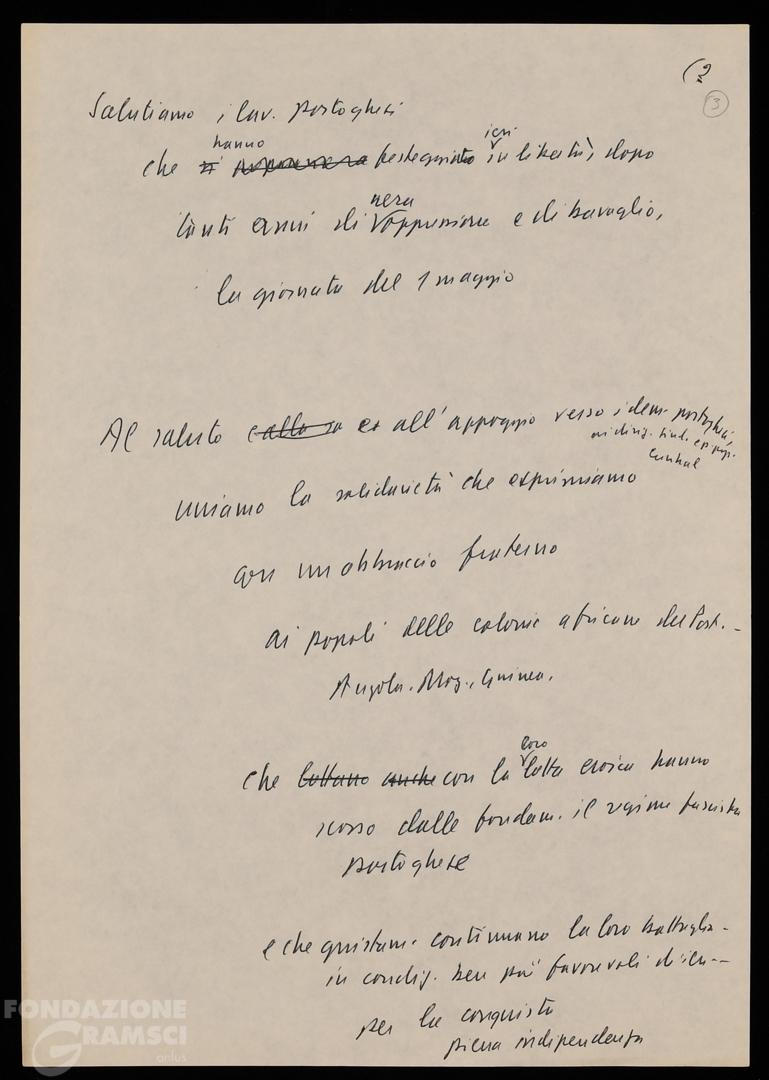 (2
(3)
Salutiamo i lav. portoghesi
hanno ieri
che si festeggiato in libertà, dopo
nera
tanti anni di oppressione e di bavaglio,
la giornata del 1 maggio
Al saluto e alla so e all'appoggio verso i dem. portoghesi,
ai dirig. sind. e pop.
Cunhal
uniamo la solidarietà che esprimiamo
con un abbraccio fraterno
ai popoli delle colonie africane del Port. -
Angola. Moz., Guinea.
loro
che lottano anche con la lotta eroica hanno
scosso dalle fondam. il regime fascista
portoghese
e che giustam. continuano la loro battaglia -
in condiz. ben più favorevoli di ieri --
per la conquista
piena indipendenza
FONDAZIONE
GRAMSCI
onlus